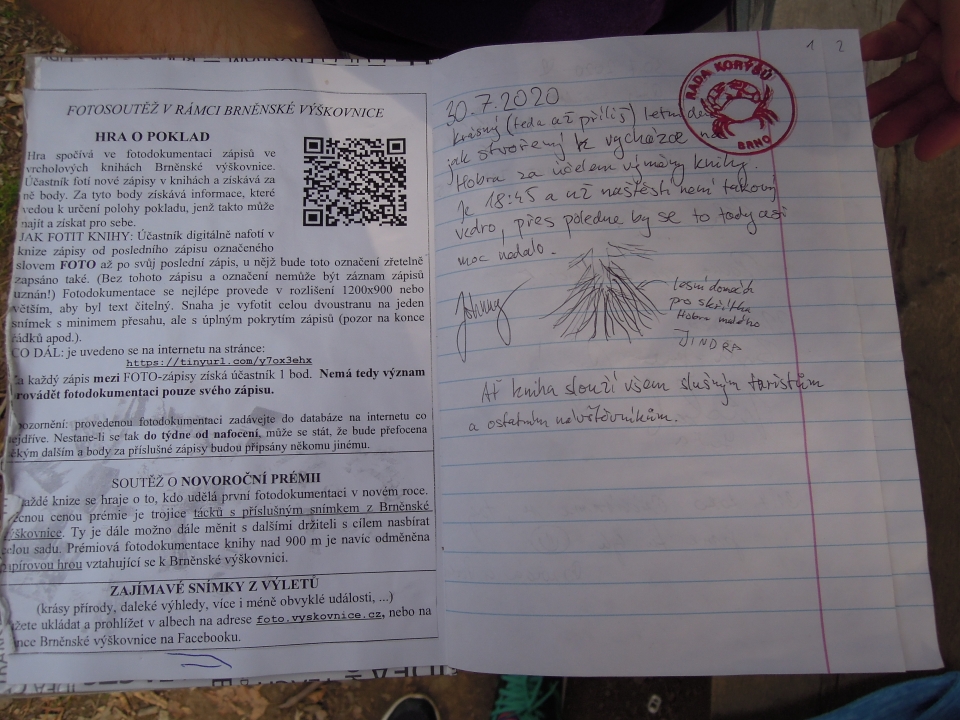 FOTOSOUTĚŽ V RÁMCI BRNĚNSKÉ VÝŠKOVNICE
HRA O POKLAD
Hra spočívá ve fotodokumentaci zápisů ve
vrcholových knihách Brněnské výškovnice.
Účastník fotí nové zápisy v knihách a získává za
ně body. Za tyto body získává informace, které
vedou k určení polohy pokladu, jenž takto může
najít a získat pro sebe.
JAK FOTIT KNIHY: Účastník digitálně nafotí v
knize zápisy od posledního zápisu označeného
slovem FOTO až po svůj poslední zápis, u nějž bude toto označení zřetelně
zapsáno také. (Bez tohoto zápisu a označení nemůže být záznam zápisů
uznán!) Fotodokumentace se nejlépe provede v rozlišení 1200x900 nebo
větším, aby byl text čitelný. Snaha je vyfotit celou dvoustranu na jeden
snímek s minimem přesahu, ale s úplným pokrytím zápisů (pozor na konce
řádků apod.).
CO DÁL: je uvedeno se na internetu na stránce:
https://tinyurl.com/y7ox3ehx
a každý zápis mezi FOTO-zápisy získá účastník 1 bod. Nemá tedy význam
rovádět fotodokumentaci pouze svého zápisu.
pozornění: provedenou fotodokumentaci zadávejte do databáze na internetu co
ejdříve. Nestane-li se tak do týdne od nafocení, může se stát, že bude přefocena
ěkým dalším a body za příslušné zápisy budou připsány někomu jinému.
SOUTĚŽ O NOVOROČNÍ PRÉMII
každé knize se hraje o to, kdo udělá první fotodokumentaci v novém roce.
ěcnou cenou prémie je trojice tácků s příslušným snímkem z Brněnské
výškovnice. Ty je dále možno dále měnit s dalšími držiteli s cílem nasbírat
elou sadu. Prémiová fotodokumentace knihy nad 900 m je navíc odměněna
apírovou hrou vztahující se k Brněnské výškovnici.
ZAJÍMAVÉ SNÍMKY Z VÝLETŮ
(krásy přírody, daleké výhledy, více i méně obvyklé události, ...)
ůžete ukládat a prohlížet v albech na adrese foto.vyskovnice.cz, nebo na
ánce Brněnské výškovnice na Facebooku.
1 2
RADA KORÝŠŮ
BRNO
30.7.2020
Krásný (teda až příliš) letní den
jak stvořený k vycházce na
Hobra za účelem výměny knihy.
Je 18:45 a už naštěstí není takový
vedro, přes poledne by se to tady asi
moc nedalo.
Johnny
lesní domeček
pro skřítka
Hobra malého
JINDRA
Ať kniha slouží všem slušným turistům
a ostatním návštěvníkům.